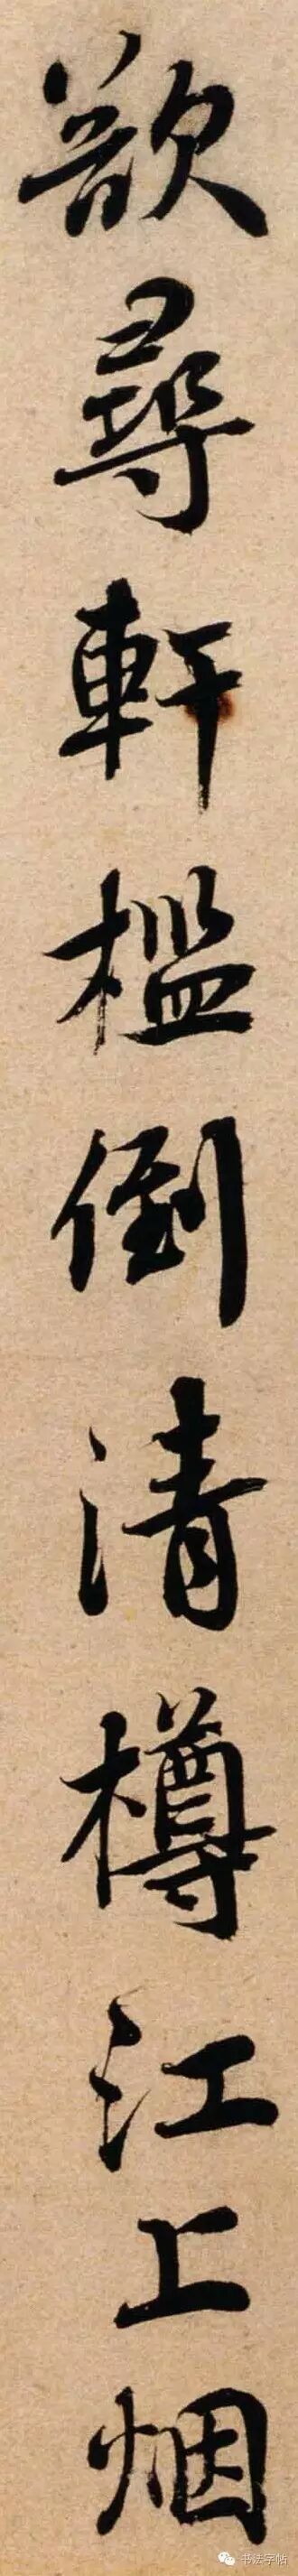 欲尋軒檻倒清樽江上烟
书法字帖